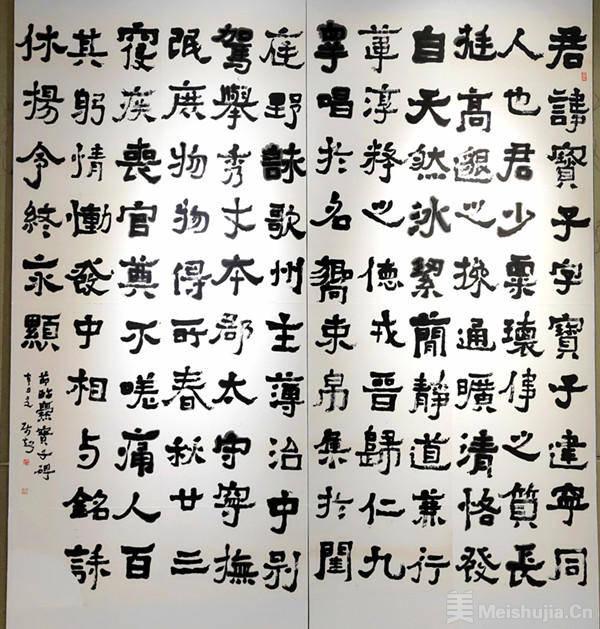 君諱寶子字寶子建寧同
人也君少稟瓌偉之質長
挺高邈之操通曠清恪發
自天然冰絜簡靜道兼行
葦淳粹之德戎晉歸仁九
皋唱於名響束帛集於閨
庭野詠歌州主薄治中别
駕舉秀才本郡太守寧撫
氓庶物物得所春秋廿三
寢疾喪官莫不嗟痛人百
其躬情慟發中相与銘誄
休揚令終永顯
節臨爨寶子碑
美 Meishujia.Cn